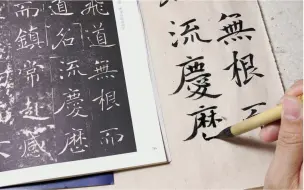 飛道無根而
道名流慶歷
而鎮常赴感
無根而
流慶歷